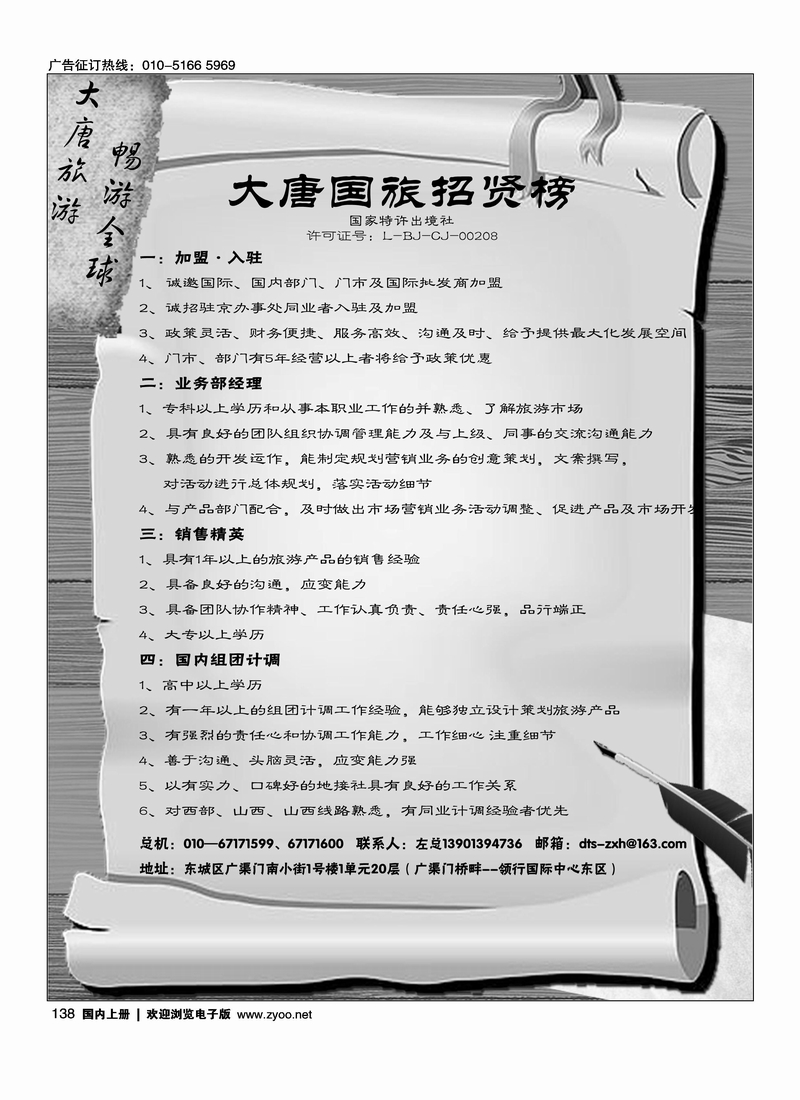 广告征订热线：010-5166 5969
大唐旅游
畅游全球
大唐国旅招贤榜
国家特许出境社
许可证号：L-BJ-CJ-00208
一：加盟·入驻
1、诚邀国际、国内部门、门市及国际批发商加盟
2、诚招驻京办事处同业者入驻及加盟
3、政策灵活、财务便捷、服务高效、沟通及时、给予提供最大化发展空间
4、门市、部门有5年经营以上者将给予政策优惠
二：业务部经理
1、专科以上学历和从事本职业工作的并熟悉、了解旅游市场
2、具有良好的团队组织协调管理能力及与上级、同事的交流沟通能力
3、熟悉的开发运作，能制定规划营销业务的创意策划，文案撰写，
对活动进行总体规划，落实活动细节
4、与产品部门配合，及时做出市场营销业务活动调整、促进产品及市场开发
三：销售精英
1、具有1年以上的旅游产品的销售经验
2、具备良好的沟通，应变能力
3、具备团队协作精神、工作认真负责、责任心强，品行端正
4、大专以上学历
四：国内组团计调
1、高中以上学历
2、有一年以上的组团计调工作经验，能够独立设计策划旅游产品
3、有强烈的责任心和协调工作能力，工作细心 注重细节
4、善于沟通、头脑灵活，应变能力强
5、以有实力、口碑好的地接社具有良好的工作关系
6、对西部、山西、山西线路熟悉，有同业计调经验者优先
总机：010—67171599、67171600 联系人：左总13901394736 邮箱：dts-zxh@163.com
地址：东城区广渠门南小街1号楼1单元20层（广渠门桥畔--领行国际中心东区）
138 国内上册 | 欢迎浏览电子版 www.zyoo.net